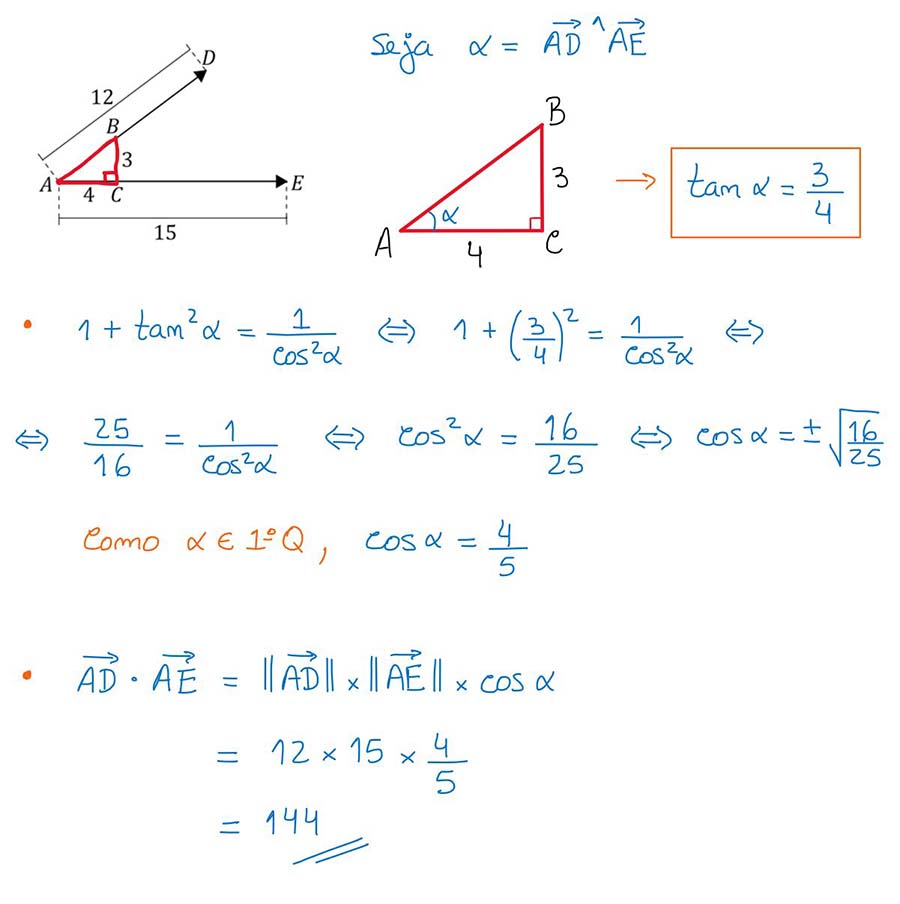 D
12
B
3
A
4 C
E
15
Seja α = AD⃗ ^ AE⃗
B
3
α
A
4
C
→ tan α = 3/4
• 1 + tan²α = 1/cos²α ⇔ 1 + (3/4)² = 1/cos²α ⇔
⇔ 25/16 = 1/cos²α ⇔ cos²α = 16/25 ⇔ cos α = ± √(16/25)
Como α ∈ 1ºQ, cos α = 4/5
• AD⃗ · AE⃗ = ||AD⃗|| × ||AE⃗|| × cos α
= 12 × 15 × 4/5
= 144